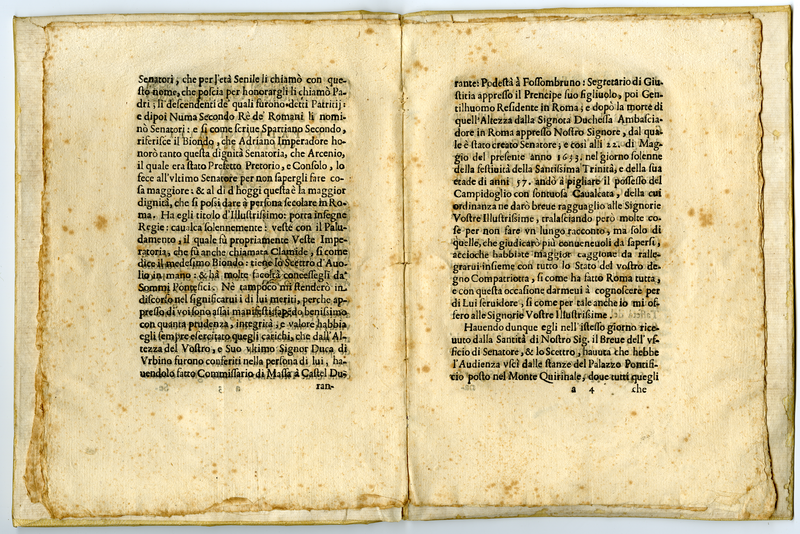 Senatori, che per l'età Senile li chiamò con que-
sto nome, che poscia per honorargli li chiamò Pa-
dri, li descendenti de' quali furono detti Patritij:
e dipoi Numa Secondo Rè de' Romani li nomi-
nò Senatori: e si come scriue Spartiano Secondo,
riferisce il Biondo, che Adriano Imperadore ho-
norò tanto questa dignità Senatoria, che Arcenio,
il quale era stato Prefetto Pretorio, e Consolo, lo
fece all'vltimo Senatore per non sapergli fare co-
sa maggiore: & al dì d'hoggi questa è la maggior
dignità, che si possi dare à persona secolare in Ro-
ma. Ha egli titolo d'Illustrissimo: porta insegne
Regie: caualca solennemente: veste con il Palu-
damento, il quale fù propriamente Veste Impe-
ratoria, che fù anche chiamata Clamide, si come
dice il medesimo Biondo: tiene lo Scettro d'Auo-
lio in mano: & hà molte facoltà concessegli da'
Sommi Pontefici. Nè tampoco mi stenderò in
discorso nel significarui i di lui meriti, perche ap-
presso di voi sono assai manifesti sapedo benissimo
con quanta prudenza, integrità, e valore habbia
egli sempre esercitato quegli carichi, che dall'Al-
tezza del Vostro, e Suo vltimo Signor Duca di
Vrbino furono conferiti nella persona di lui, ha-
uendolo fatto Commissario di Massa à Castel Du-
ran-
rante: Podestà à Fossombruno: Segretario di Giu-
stitia appresso il Prencipe suo figliuolo, poi Gen-
tilhuomo Residente in Roma; e dopò la morte di
quell'Altezza dalla Signora Duchessa Ambascia-
dore in Roma appresso Nostro Signore, dal qua-
le è stato creato Senatore; e così alli 22. di Mag-
gio del presente anno 1633. nel giorno solenne
della festiuità della Santissima Trinità, e della sua
etade di anni 57. andò à pigliare il possesso del
Campidoglio con sontuosa Caualcata, della cui
ordinanza ne darò breue ragguaglio alle Signorie
Vostre Illustrissime, tralasciando però molte co-
se per non fare vn lungo racconto, ma solo di
quelle, che giudicarò più conueneuoli da sapersi,
acciochè habbiate maggior caggione da ralle-
grarui insieme con tutto lo Stato del vostro de-
gno Compatriotta, si come ha fatto Roma tutta,
e con questa occasione darmeui à cognoscere per
di Lui seruidore, si come per tale anche io mi of-
fero alle Signorie Vostre Illustrissime.
Hauendo dunque egli nell'istesso giorno rice-
uuto dalla Santità di Nostro Sig. il Breue dell'vf-
ficio di Senatore, & lo Scettro, hauuta che hebbe
l'Audienza vscì dalle stanze del Palazzo Pontifi-
cio posto nel Monte Quirinale, doue tutti quegli
a 4 che